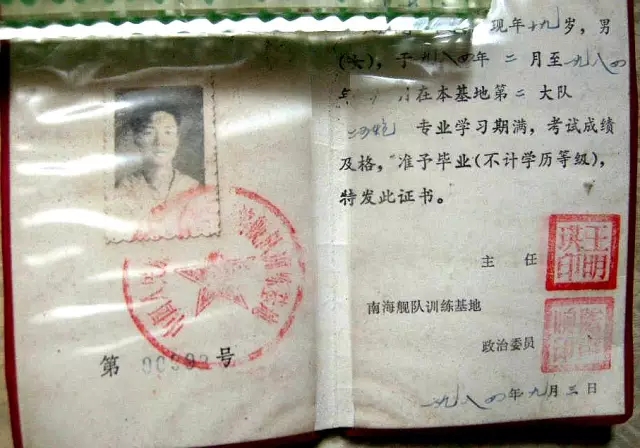 第 00398 号
现年十九岁，男
(女)，于一九八四年二月至一九八四
年 月在本基地第二大队
专业学习期满，考试成绩
及格，准予毕业(不计学历等级)，
特发此证书。
主任
王明琪印
南海舰队训练基地
政治委员
一九八四年九月三日